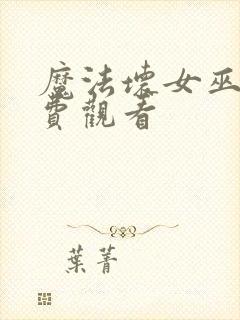 魔法壞女巫
費觀看
葉菁